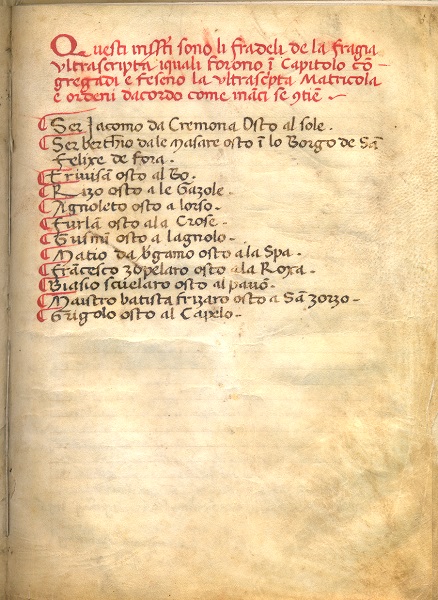 Questi infſti sono li fradeli de la fragia
vltrascripta iquali forono ī Capitolo cō-
gregadi e feseno la vltrascpta Matricola
e ordeni dacordo come māci se 9tiē
Ser Jacomo da Cremona Osto al sole.
Ser berthīo da le Masare osto ī lo Borgo de Sā
Felixe de fora.
Triuisā osto al Bo.
Rizo osto a le Gazole.
Agnoleto osto a lorso.
Furlā osto ala Crose.
osto a lagnolo.
Matio da bgamo osto ala Spa.
Frācesco zopelaro osto ala Roxa.
Biasio scuelaro osto al pauō.
Maistro batista frizaro osto a Sā zorzo.
Grigolo osto al Capelo.